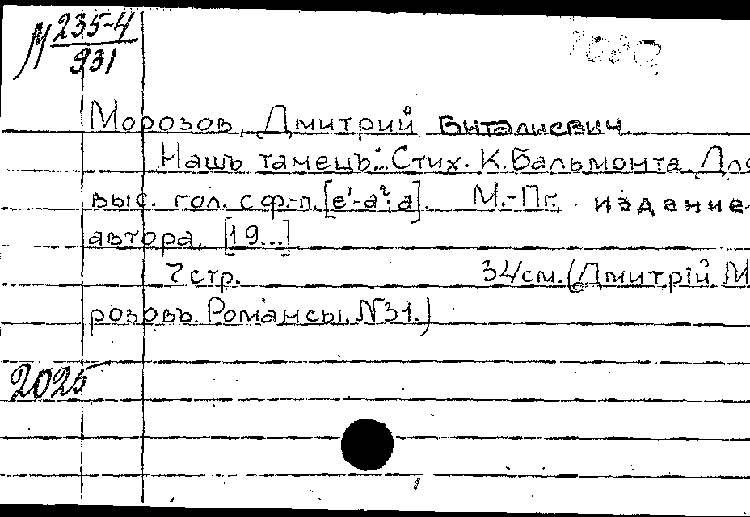 М 235-4
931
Морозов, Дмитрий Витальевич
Нашъ танецъ. Стих. К. Бальмонта. Для
выс. гол. с ф-п. [e¹-a²-a]. М.-Пг. издание
автора, [19...]
7 стр. 34 см. (Дмитрій М
розовъ. Романсы. N31.)
2025